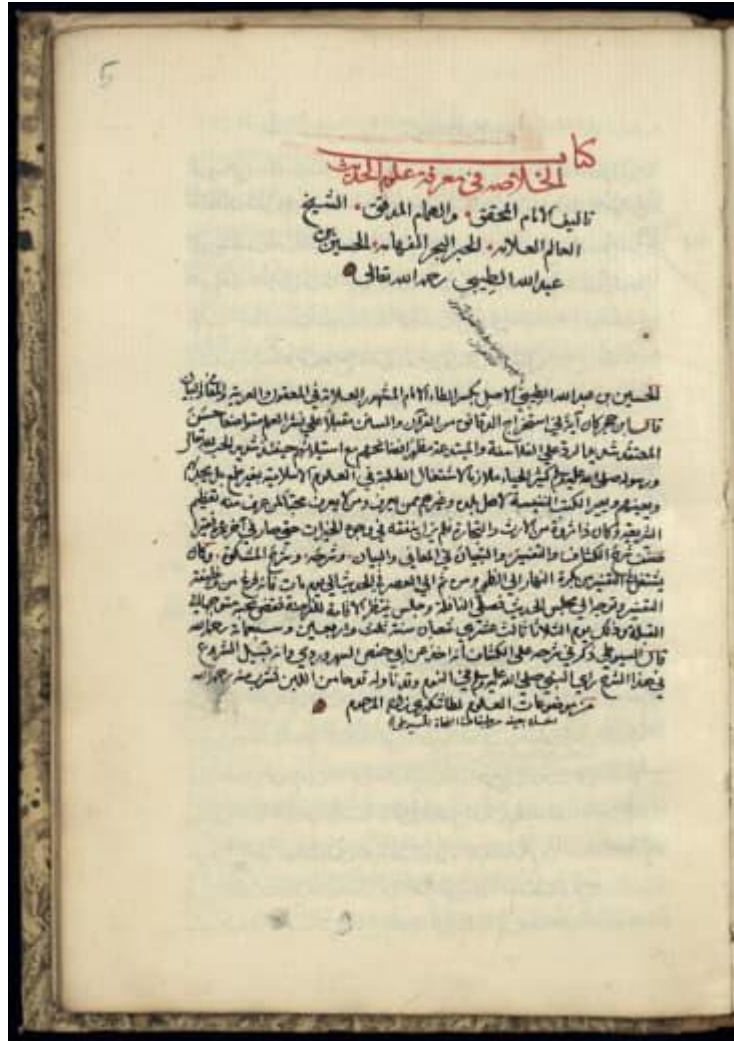 كتاب
الخلاصه في معرفة علوم الحديث
تاليف الامام المحقق والهمام المدقق الشيخ
العالم العلامه الحبر البحر الفهامه الحسين بن
عبد الله الطيبي رحمه الله تعالى
الحسين بن عبد الله الطيبي الاصل بكسر الطاء الامام المشهور العلامة في المعقول والعربية والمعاني والبيان
قال ابن حجر كان آية في استخراج الدقائق من القرآن والسنن مقبلا على نشر العلم متواضعا حسن
المعتقد شديد الرد على الفلاسفة والمبتدعة مظهرا فضائحهم مع استيلائهم حينئذ شديد الحب لله تعالى
ورسوله صلى الله عليه وسلم كثير الحياء ملازما لاشتغال الطلبة في العلوم الاسلامية بغير طمع بل يجديهم
ويعينهم ويعير الكتب النفيسة لاهل بلده وغيرهم ممن يعرف ومن لا يعرف محبا لمن عرف منه تعظيم
الشريعة وكان ذا ثروة من الارث والتجارة فلم يزل ينفقه في وجوه الخيرات حتى صار في آخر عمره فقيرا
صنف شرح الكشاف والتفسير والتبيان في المعاني والبيان وشرحه وشرح المشكوة وكان
يشتغل في التفسير من بكرة النهار الى الظهر ومن ثم الى العصر في الحديث الى يوم مات فانه فرغ من وظيفة
التفسير وتوجه الى مجلس الحديث فصلى النافلة وجلس ينتظر الاقامة للفريضة فقضى نحبه متوجها الى
القبلة وذلك يوم الثلاثا ثالث عشري شعبان سنة ثلث واربعين وسبعماية رحمه الله
قال السيوطي ذكر في شرحه على الكشاف انه اخذ عن ابي حفص السهروردي وانه قبيل الشروع
في هذا الشرح راى النبي صلى الله عليه وسلم في النوم وقد ناوله قدحا من اللبن فشرب منه رحمه الله
من موضوعات العلوم لطاشكبري زاده المرحوم